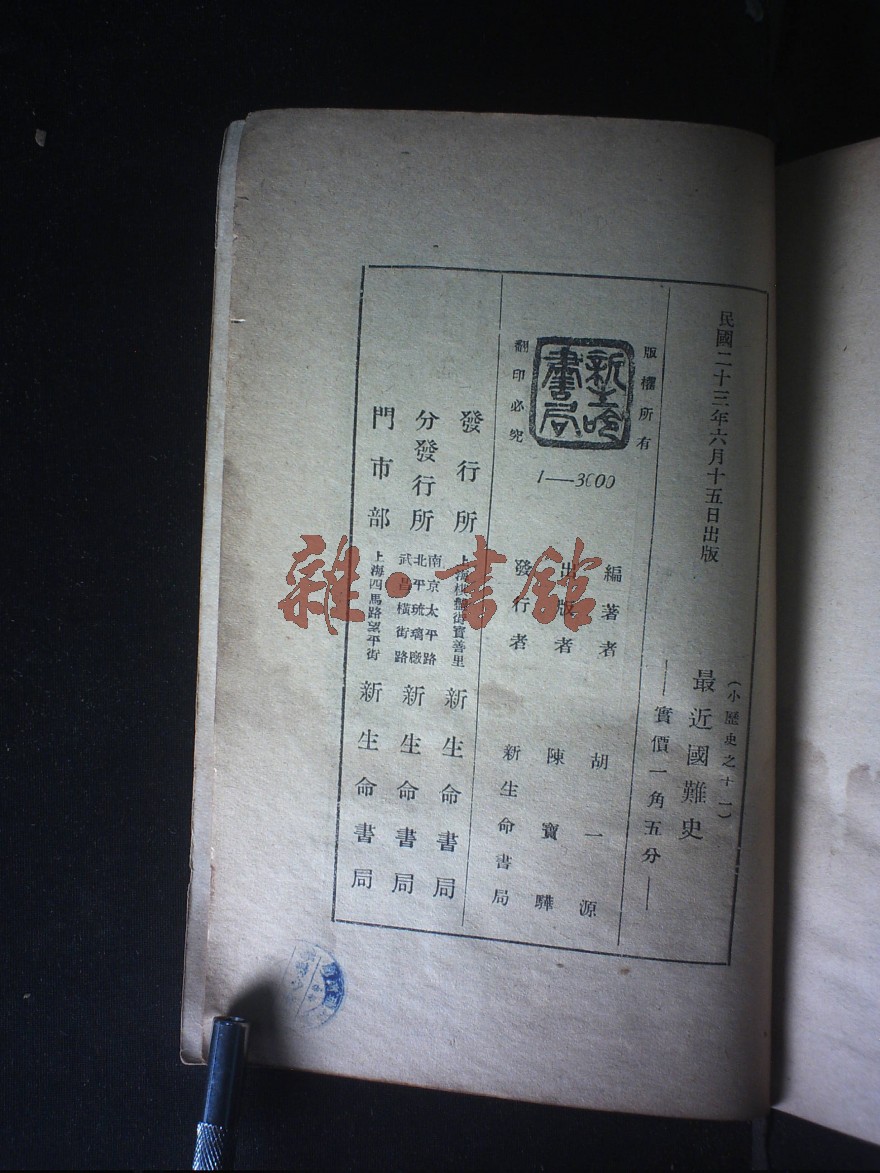 民國二十三年六月十五日出版
(小歷史之十一)
最近國難史
——實價一角五分——
版權所有
新生命書局
翻印必究
1—3000
編著者 胡一源
出版者 陳寶驊
發行者 新生命書局
發行所 上海棋盤街寶善里 新生命書局
分發行所 南京太平路 北平琉璃廠 武昌橫街路 新生命書局
門市部 上海四馬路望平街 新生命書局
雜·書館